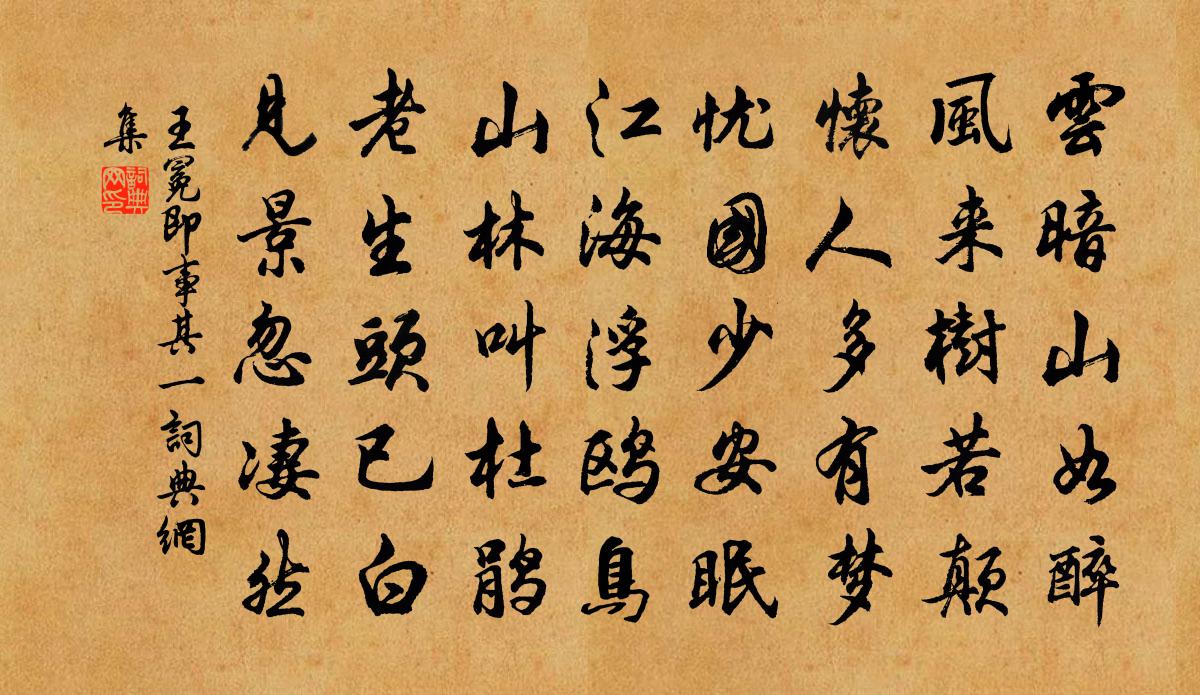 雲暗山如醉
風来樹若颠
懷人多有梦
忧國少安眠
江海浮鸥鳥
山林叫杜鹃
老生頭已白
見景忽凄然
王冕即事其一 詞典網
集
詞典
网印